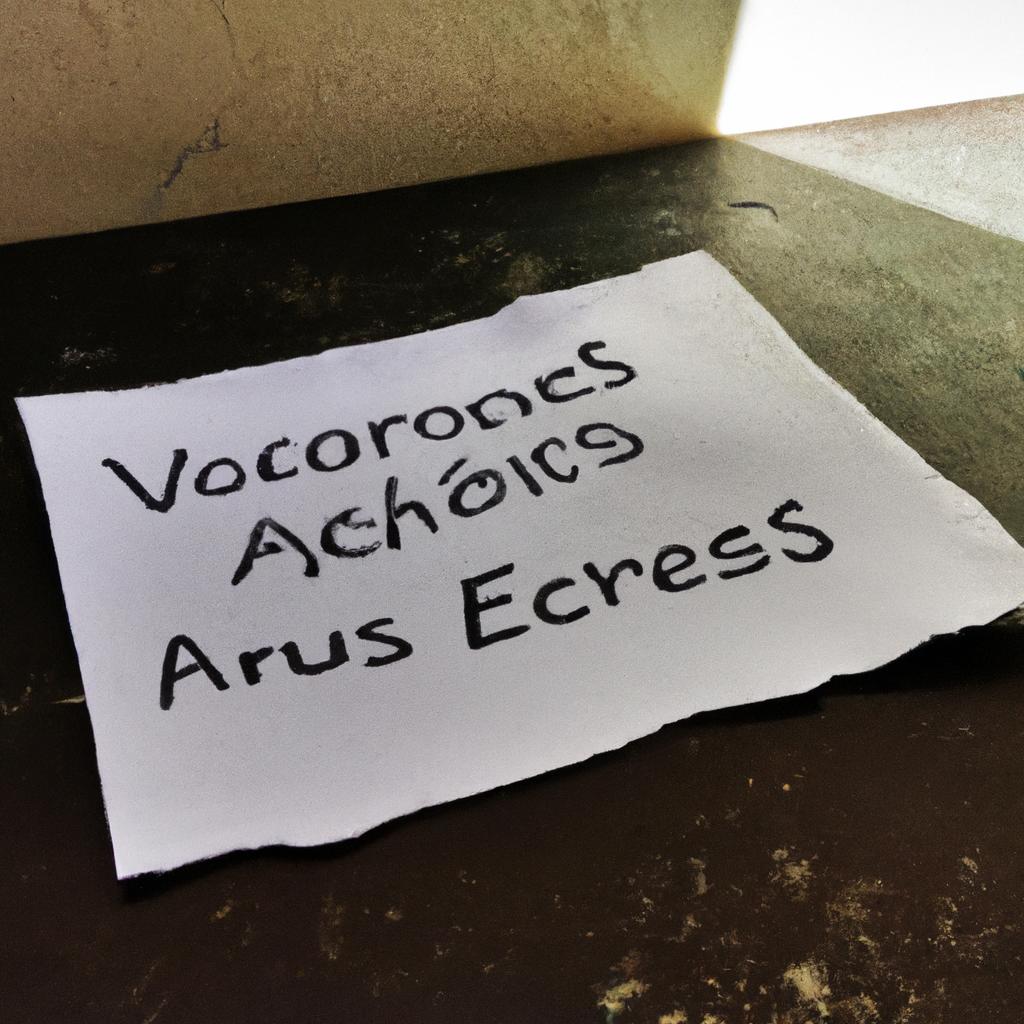 Vocorones
Achoics
Arus Ecress